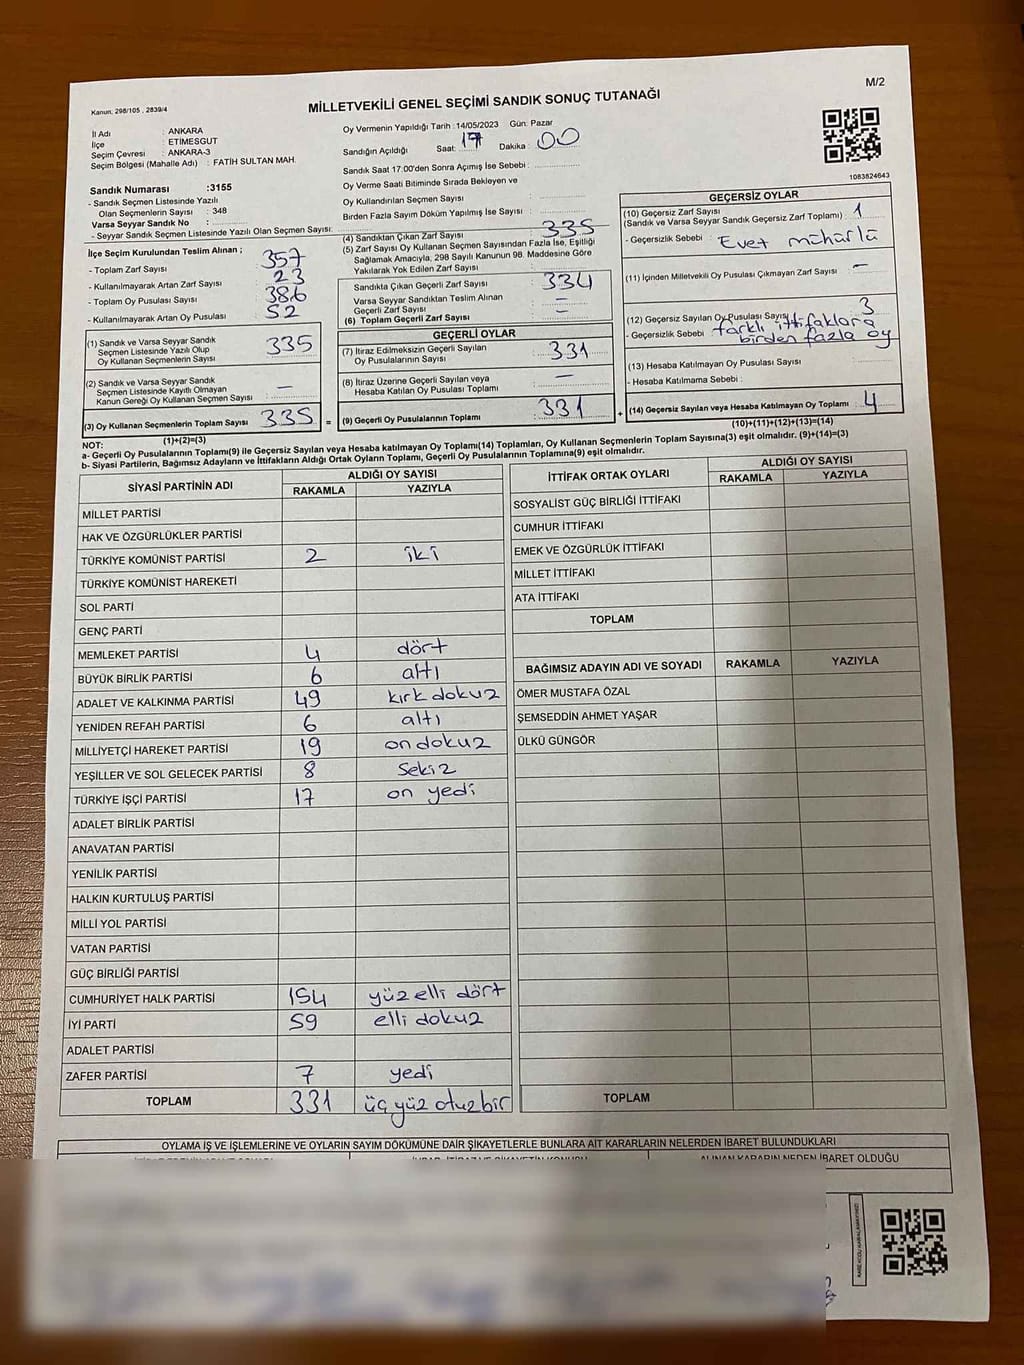 Kanun: 298/105 , 2839/4
MİLLETVEKİLİ GENEL SEÇİMİ SANDIK SONUÇ TUTANAĞI
M/2
İl Adı : ANKARA
İlçe : ETİMESGUT
Seçim Çevresi : ANKARA-3
Seçim Bölgesi (Mahalle Adı) : FATİH SULTAN MAH.
Oy Vermenin Yapıldığı Tarih :14/05/2023 Gün: Pazar
Sandığın Açıldığı Saat: 17 Dakika : 00
Sandık Saat 17:00'den Sonra Açımış İse Sebebi :
Oy Verme Saati Bitiminde Sırada Bekleyen ve
Oy Kullandırılan Seçmen Sayısı :
Birden Fazla Sayım Döküm Yapılmış İse Sayısı :
1083824643
Sandık Numarası :3155
- Sandık Seçmen Listesinde Yazılı
Olan Seçmenlerin Sayısı : 348
Varsa Seyyar Sandık No :
- Seyyar Sandık Seçmen Listesinde Yazılı Olan Seçmen Sayısı:
İlçe Seçim Kurulundan Teslim Alınan ;
- Toplam Zarf Sayısı : 357
- Kullanılmayarak Artan Zarf Sayısı : 23
- Toplam Oy Pusulası Sayısı : 386
- Kullanılmayarak Artan Oy Pusulası : 52
(1) Sandık ve Varsa Seyyar Sandık
Seçmen Listesinde Yazılı Olup
Oy Kullanan Seçmenlerin Sayısı : 335
(2) Sandık ve Varsa Seyyar Sandık
Seçmen Listesinde Kayıtlı Olmayan
Kanun Gereği Oy Kullanan Seçmen Sayısı : -
(3) Oy Kullanan Seçmenlerin Toplam Sayısı : 335
(1)+(2)=(3)
(4) Sandıktan Çıkan Zarf Sayısı : 335
(5) Zarf Sayısı Oy Kullanan Seçmen Sayısından Fazla İse, Eşitliği
Sağlamak Amacıyla, 298 Sayılı Kanunun 98. Maddesine Göre
Yakılarak Yok Edilen Zarf Sayısı :
Sandıkta Çıkan Geçerli Zarf Sayısı : 334
Varsa Seyyar Sandıktan Teslim Alınan
Geçerli Zarf Sayısı : -
(6) Toplam Geçerli Zarf Sayısı : -
GEÇERLİ OYLAR
(7) İtiraz Edilmeksizin Geçerli Sayılan
Oy Pusulalarının Sayısı : 331
(8) İtiraz Üzerine Geçerli Sayılan veya
Hesaba Katılan Oy Pusulası Toplamı : -
= (9) Geçerli Oy Pusulalarının Toplamı : 331
GEÇERSİZ OYLAR
(10) Geçersiz Zarf Sayısı
(Sandık ve Varsa Seyyar Sandık Geçersiz Zarf Toplamı) : 1
- Geçersizlik Sebebi : Evet mühürlü
(11) İçinden Milletvekili Oy Pusulası Çıkmayan Zarf Sayısı : -
(12) Geçersiz Sayılan Oy Pusulası Sayısı : 3
- Geçersizlik Sebebi : farklı ittifaklara
birden fazla oy
(13) Hesaba Katılmayan Oy Pusulası Sayısı :
- Hesaba Katılmama Sebebi :
+ (14) Geçersiz Sayılan veya Hesaba Katılmayan Oy Toplamı : 4
(10)+(11)+(12)+(13)=(14)
NOT:
a- Geçerli Oy Pusulalarının Toplamı(9) ile Geçersiz Sayılan veya Hesaba katılmayan Oy Toplamı(14) Toplamları, Oy Kullanan Seçmenlerin Toplam Sayısına(3) eşit olmalıdır. (9)+(14)=(3)
b- Siyasi Partilerin, Bağımsız Adayların ve İttifakların Aldığı Ortak Oyların Toplamı, Geçerli Oy Pusulalarının Toplamına(9) eşit olmalıdır.
SİYASİ PARTİNİN ADI ALDIĞI OY SAYISI
RAKAMLA YAZIYLA
MİLLET PARTİSİ
HAK VE ÖZGÜRLÜKLER PARTİSİ
TÜRKİYE KOMÜNİST PARTİSİ 2 iki
TÜRKİYE KOMÜNİST HAREKETİ
SOL PARTİ
GENÇ PARTİ
MEMLEKET PARTİSİ 4 dört
BÜYÜK BİRLİK PARTİSİ 6 altı
ADALET VE KALKINMA PARTİSİ 49 kırk dokuz
YENİDEN REFAH PARTİSİ 6 altı
MİLLİYETÇİ HAREKET PARTİSİ 19 on dokuz
YEŞİLLER VE SOL GELECEK PARTİSİ 8 Sekiz
TÜRKİYE İŞÇİ PARTİSİ 17 on yedi
ADALET BİRLİK PARTİSİ
ANAVATAN PARTİSİ
YENİLİK PARTİSİ
HALKIN KURTULUŞ PARTİSİ
MİLLİ YOL PARTİSİ
VATAN PARTİSİ
GÜÇ BİRLİĞİ PARTİSİ
CUMHURİYET HALK PARTİSİ 154 yüz elli dört
İYİ PARTİ 59 elli dokuz
ADALET PARTİSİ
ZAFER PARTİSİ 7 yedi
TOPLAM 331 üç yüz otuz bir
İTTİFAK ORTAK OYLARI ALDIĞI OY SAYISI
RAKAMLA YAZIYLA
SOSYALİST GÜÇ BİRLİĞİ İTTİFAKI
CUMHUR İTTİFAKI
EMEK VE ÖZGÜRLÜK İTTİFAKI
MİLLET İTTİFAKI
ATA İTTİFAKI
TOPLAM
BAĞIMSIZ ADAYIN ADI VE SOYADI RAKAMLA YAZIYLA
ÖMER MUSTAFA ÖZAL
ŞEMSEDDİN AHMET YAŞAR
ÜLKÜ GÜNGÖR
TOPLAM
OYLAMA İŞ VE İŞLEMLERİNE VE OYLARIN SAYIM DÖKÜMÜNE DAİR ŞİKAYETLERLE BUNLARA AİT KARARLARIN NELERDEN İBARET BULUNDUKLARI
ALINAN KARARIN NEDEN İBARET OLDUĞU